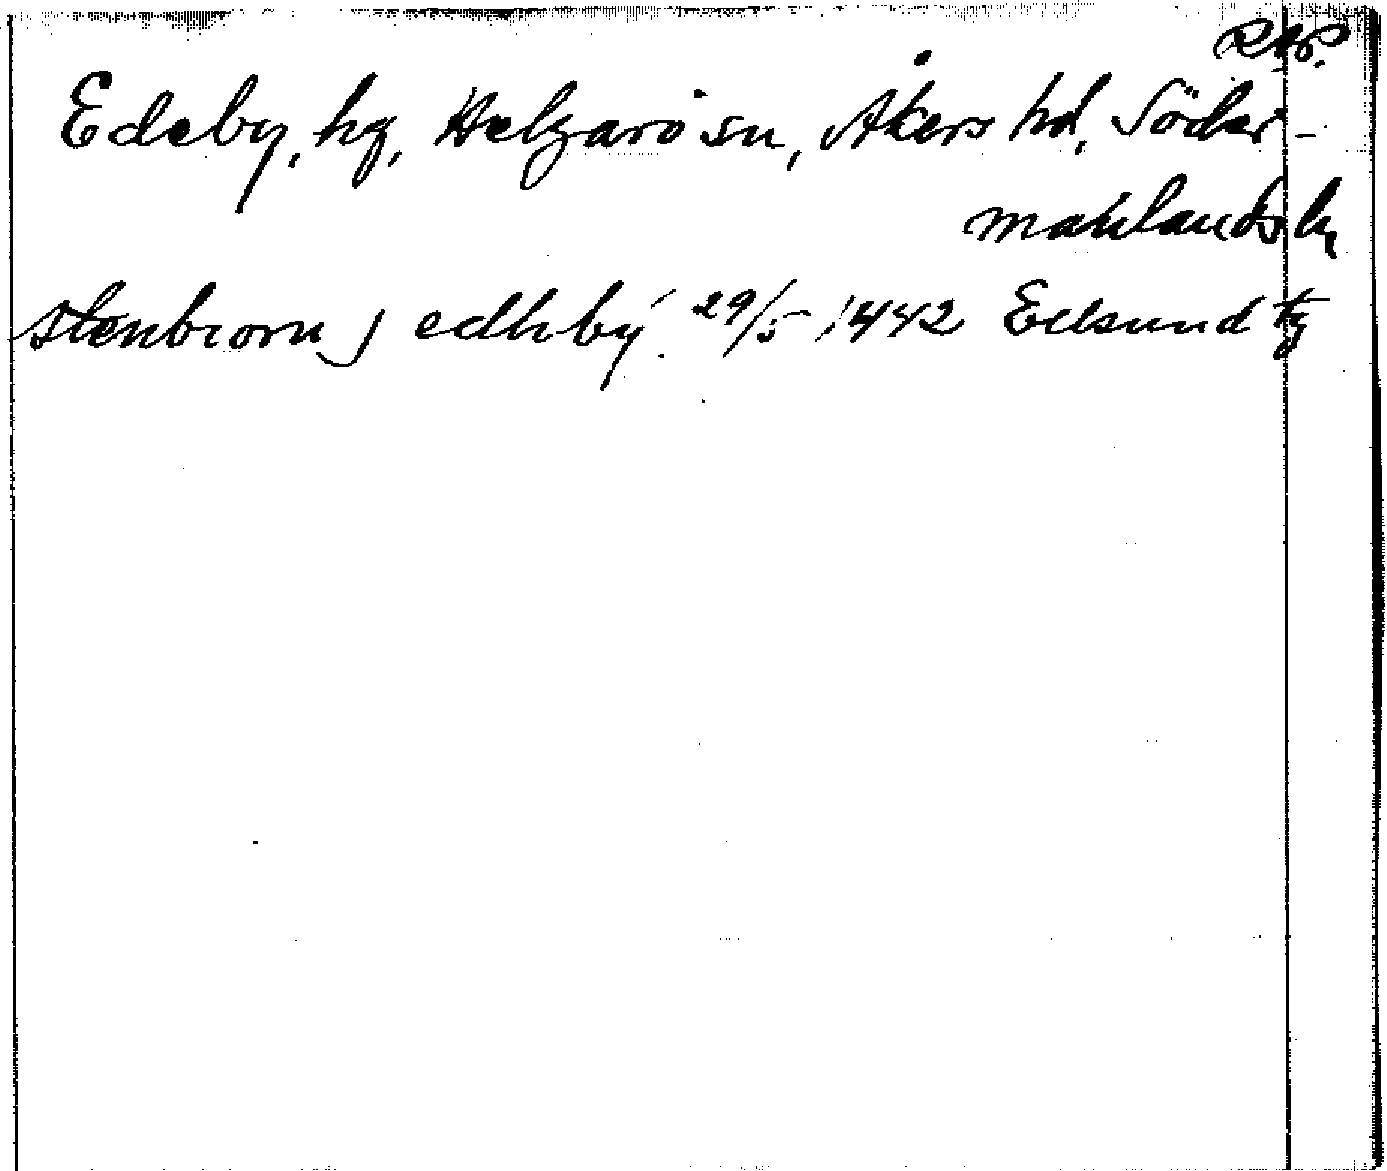 RAP.
Edeby, hg, Helgarö sn, Åkers hd, Söder-
manlands l.
stenbiorn j edhby 29/5 1442 Edsund